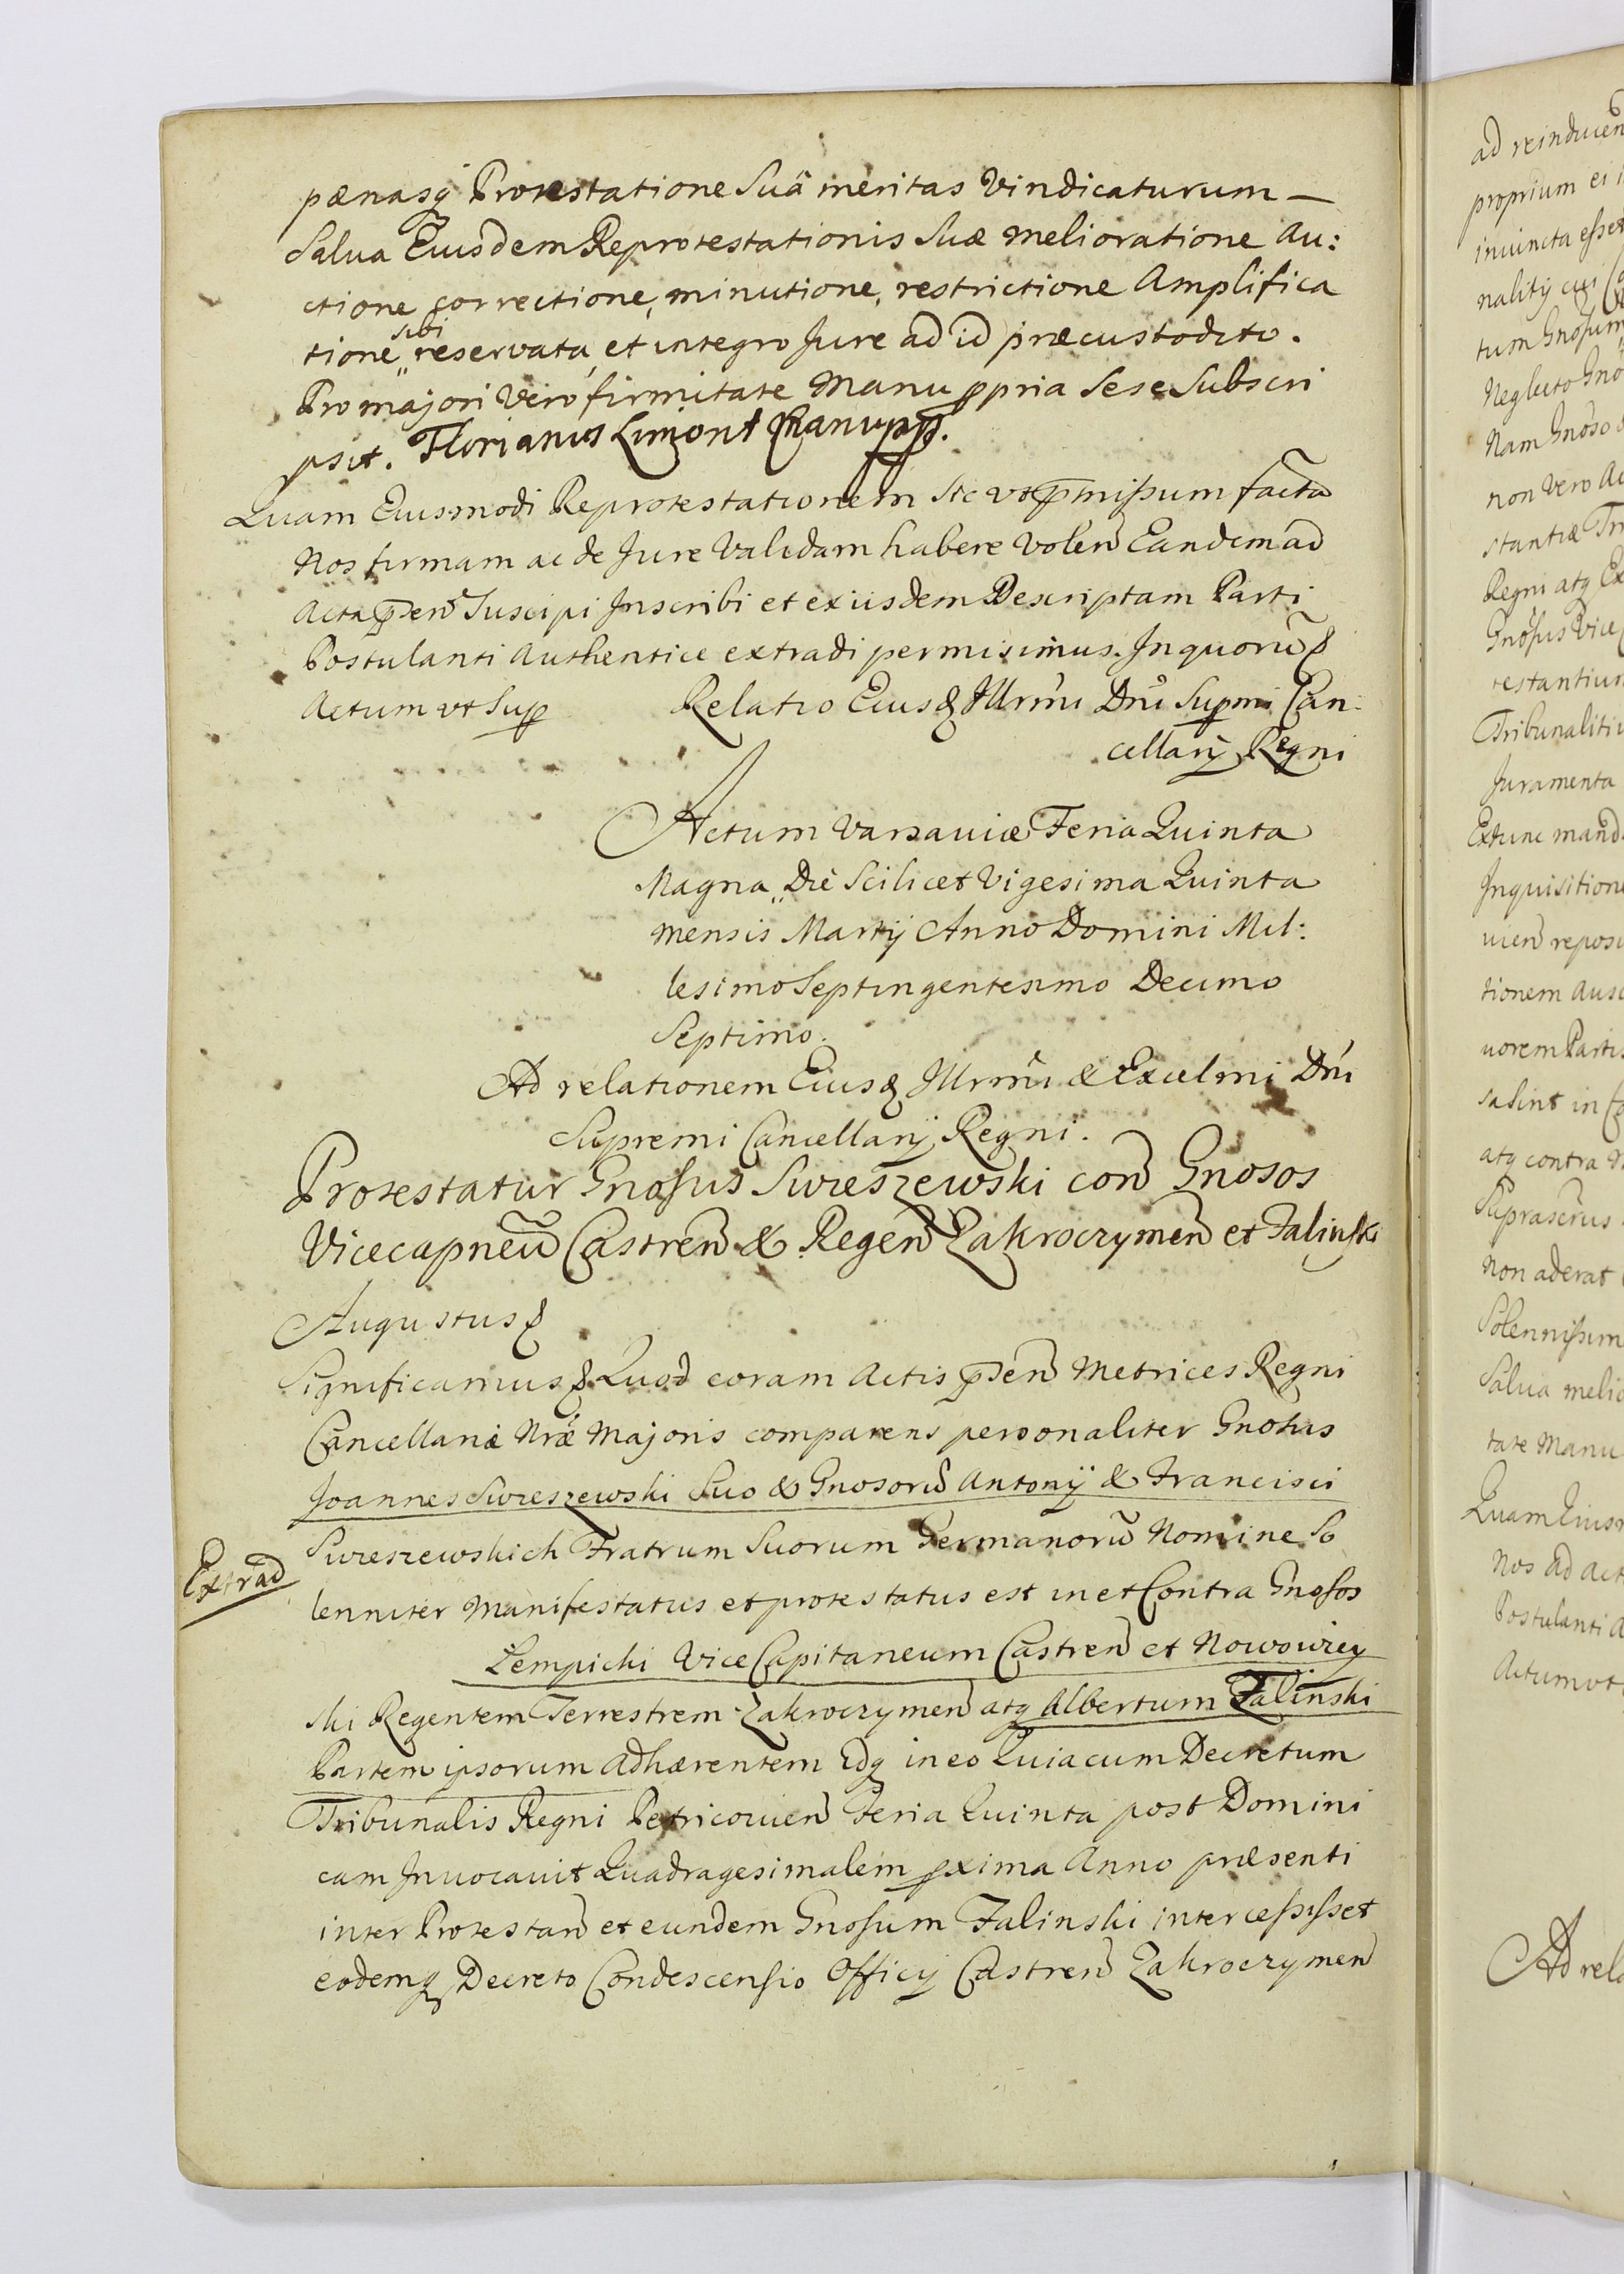 pænasq Protestatione Suâ meritas Vindicaturum —
Salua Eiusdem Reprotestationis Suæ melioratione Au:
ctione correctione, minutione, restrictione Amplifica
tione sibi reservata, et integro Jure ad id præcustodito.
Pro majori Vero firmitate Manu ppria Sese Subscri
psit. Florianus Limont Manupp.
Quam Eiusmodi Reprotestationem Sic vt pmissum facta
Nos firmam ac de Jure Validam habere Volen Eandem ad
Acta pen Suscipi Inscribi et ex iisdem Descriptam Parti
Postulanti Authentice extradi permisimus. In quorũ &
Actum vt Sup Relatio Eiusq Illrmi Dni Supmi Can:
cellarij Regni
Actum Varsauiæ Feria Quinta
Magna Die Scilicet Vigesima Quinta
mensis Martij Anno Domini Mil:
lesimo Septingentesimo Decimo
Septimo.
Ad relationem Eiusq Illrmi & Excelmi Dni
Supremi Cancellarij Regni.
Protestatur Gnosus Swieszewski con Gnosos
Vicecapneũ Castren & Regen Zakroczymen et Falinski
Augustus &
Significamus & Quod coram Actis pen Metrices Regni
Cancellariæ Nræ Majoris comparens personaliter Gnosus
Joannes Swieszewski Suo & Gnosorũ Antonij & Francisci
Extrad
Swieszewskich Fratrum Suorum Germanorũ Nomine So
lenniter Manifestatus et protestatus est in et Contra Gnosos
Lempicki Vice Capitaneum Castren et Nowowiey
ski Regentem Terrestrem Zakroczymen atq Albertum Falinski
Partem ipsorum Adhærentem Idq in eo Quia cum Decretum
Tribunalis Regni Petricouien Feria Quinta post Domini
cam Inuocauit Quadragesimalem pxima Anno præsenti
inter Protestan et eundem Gnosum Falinski intercessisset
eodemq Decreto Condescensio Officij Castren Zakroczymen
ad reinducen
proprium ei
iniuncta esset
tum Gnosum
Neglecto Gno
Nam Gnoso
non Vero Ac
stantiæ Tri
Regni atq Ex
Gnosus Vice
testantium
Tribunalitiu
Juramenta
Extunc mand
Inquisitione
uien repos
tionem Ausc
uorem Partis
atq contra
Suprascrus
Non aderat
Solennissim
Salua melio
tate Manu
Quam Eiusm
Nos ad Act
Postulanti A
Actum vt
Ad rela